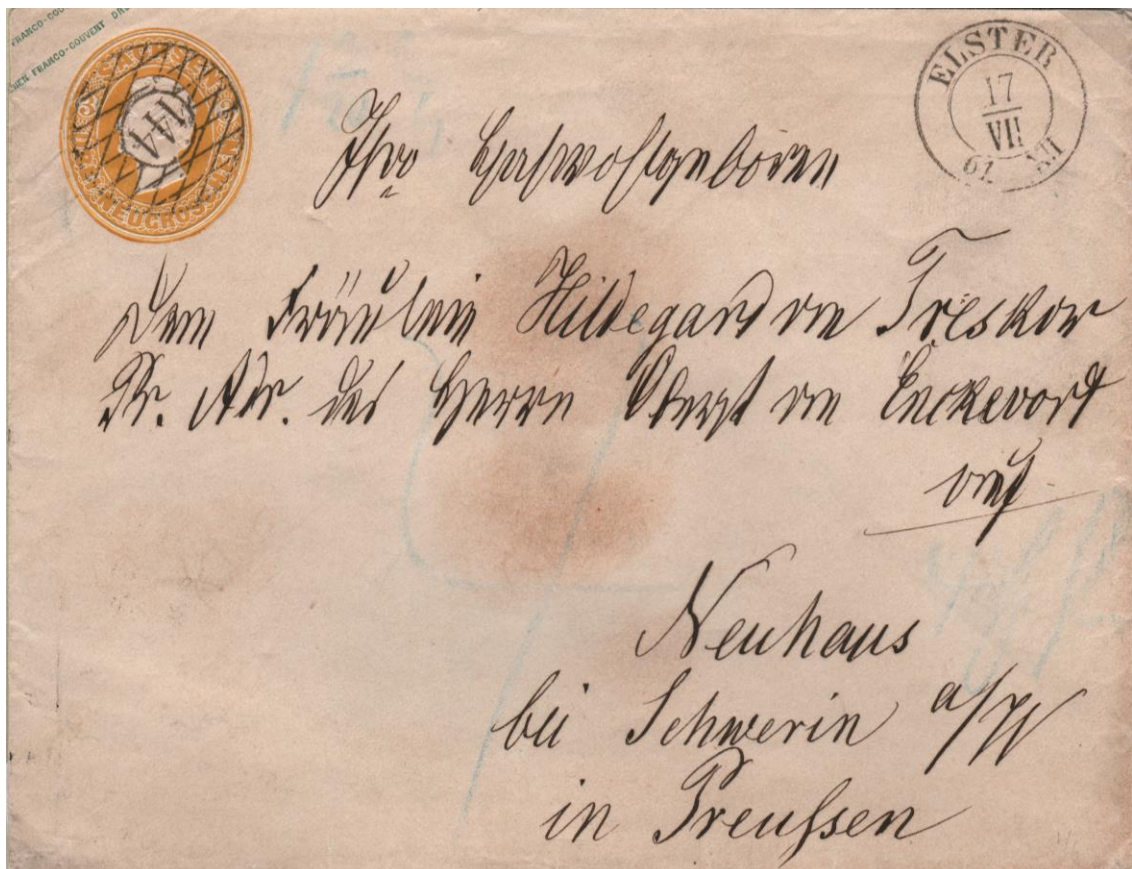 FRANCO-COU
FRANCO-COUVERT
144
ELSTER
17
VII
61 XII
Ihro Hochwohlgeboren
Dem Fräulein Hildegard von Treskow
Pr. Adr. des Herrn Oberst von Enckevort
auf
Neuhaus
bei Schwerin a/W
in Preußen